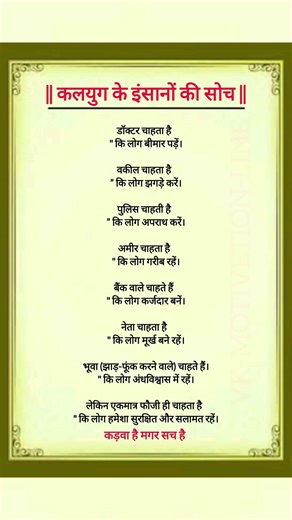 || कलयुग के इंसानों की सोच ||
डॉक्टर चाहता है
" कि लोग बीमार पड़ें।
वकील चाहता है
" कि लोग झगड़े करें।
पुलिस चाहती है
" कि लोग अपराध करें।
अमीर चाहता है
" कि लोग गरीब रहें।
बैंक वाले चाहते हैं
" कि लोग कर्जदार बनें।
नेता चाहता है
" कि लोग मूर्ख बने रहें।
भूवा (झाड़-फूंक करने वाले) चाहते हैं।
" कि लोग अंधविश्वास में रहें।
लेकिन एकमात्र फौजी ही चाहता है
" कि लोग हमेशा सुरक्षित और सलामत रहें।
कड़वा है मगर सच है